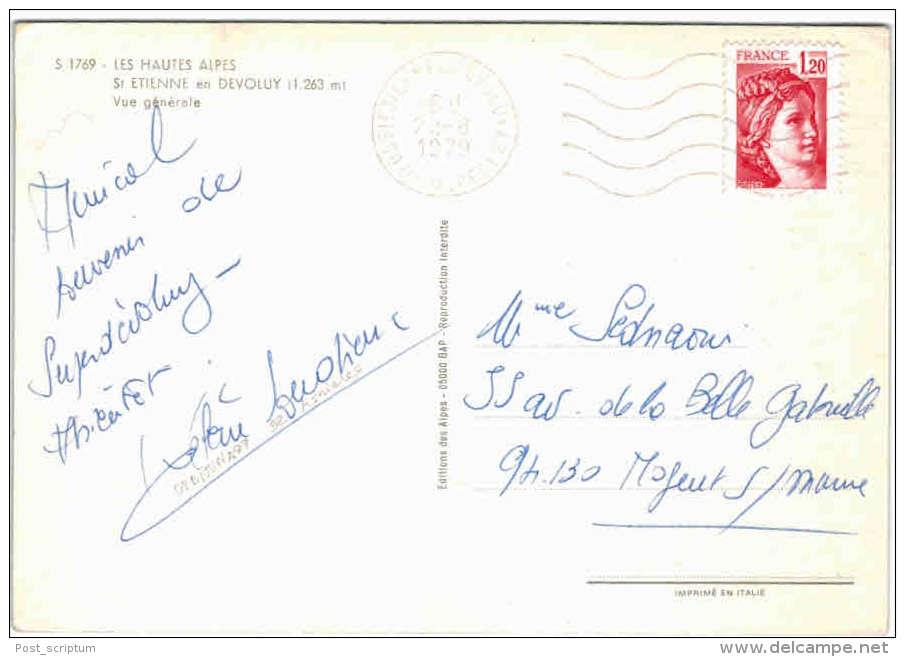 S 1769 - LES HAUTES ALPES
St ETIENNE en DEVOLUY (1.263 m)
Vue générale
FRANCE
1,20
1979
Amical
souvenir de
Superdévoluy -
Mme
55 av. de la Belle Gabrielle
94.130 Nogent S/Marne
Editions des Alpes - 05000 GAP - Reproduction Interdite
IMPRIMÉ EN ITALIE
Post_scriptum
delcampe.net